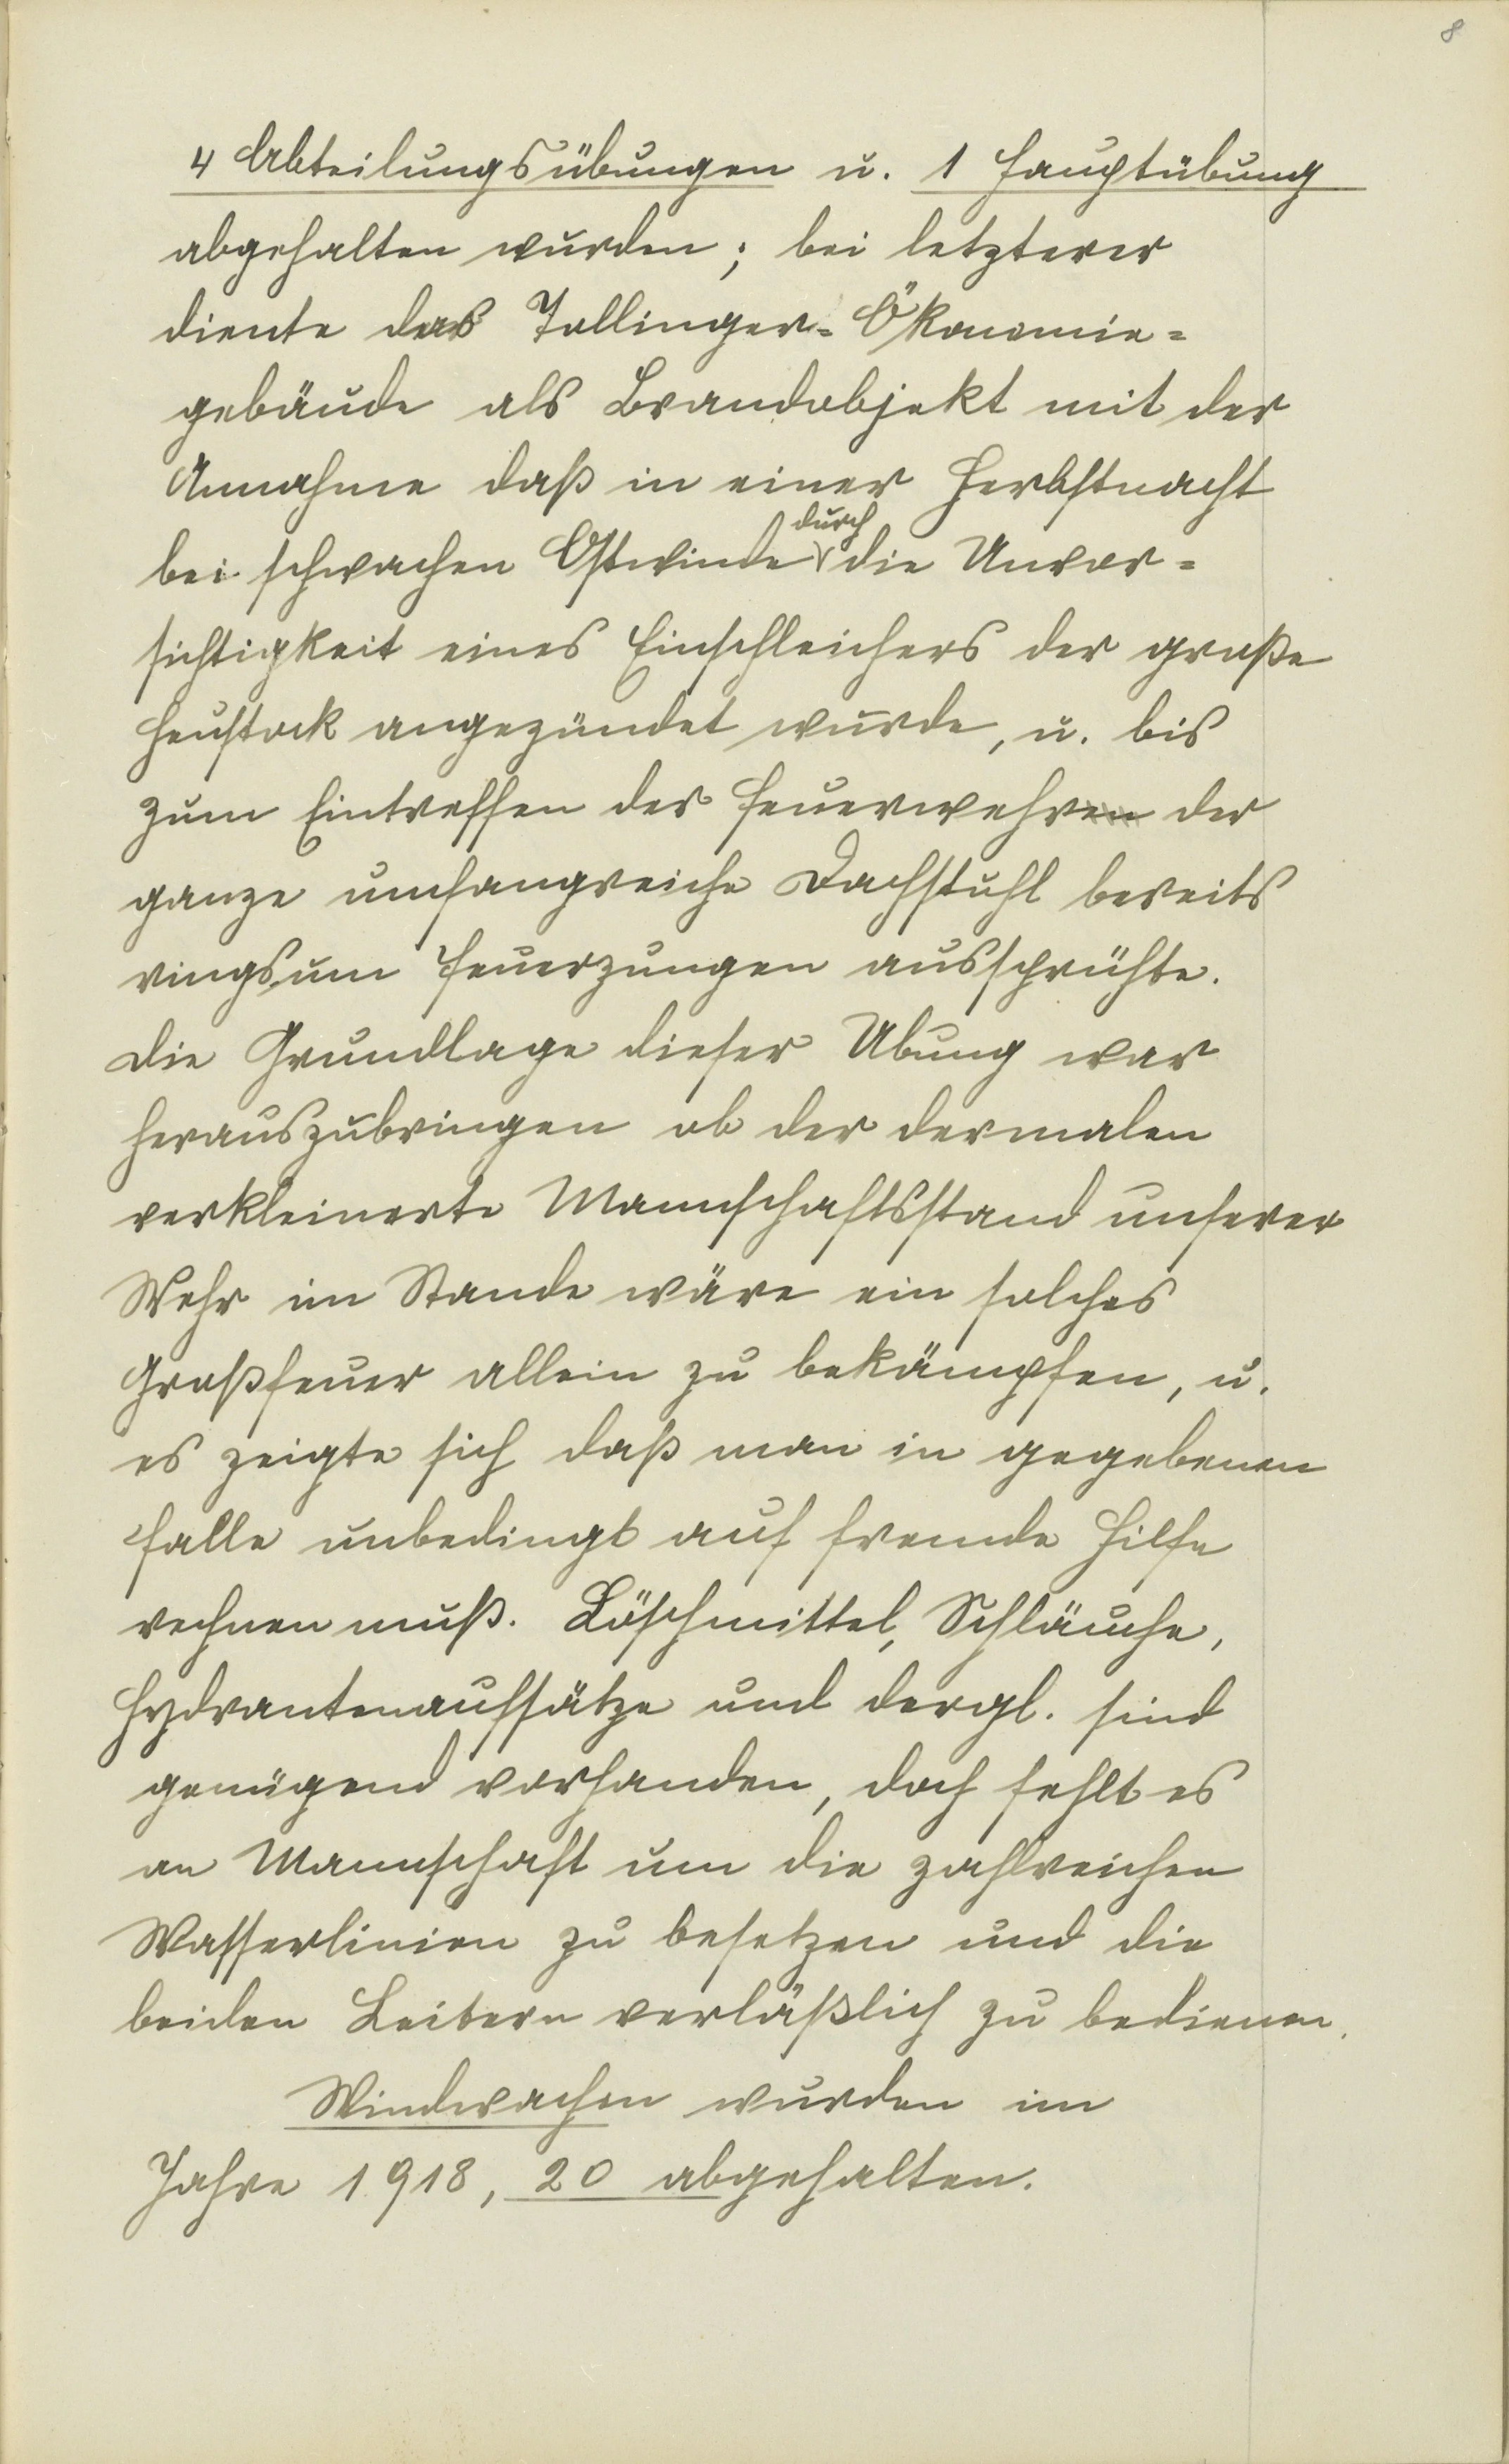 8
4 Abteilungsübungen u. 1 Hauptübung
abgehalten wurden; bei letzterer
diente das Tollinger-Ökonomie-
gebäude als Brandobjekt mit der
Annahme daß in einer Herbstnacht
bei schwachen Ostwinde durch die Unvor-
sichtigkeit eines Einschleichers der große
Heustock angezündet wurde, u. bis
zum Eintreffen der Feuerwehren der
ganze umfangreiche Dachstuhl bereits
ringsum Feuerzungen aussprühte.
Die Grundlage dieser Übung war
herauszubringen ob der dermalen
verkleinerte Mannschaftsstand unserer
Wehr im Stande wäre ein solches
Großfeuer allein zu bekämpfen, u.
es zeigte sich daß man in gegebenen
Falle unbedingt auf fremde Hilfe
rechnen muß. Löschmittel, Schläuche,
Hydrantenaufsätze und dergl. sind
genügend vorhanden, doch fehlt es
an Mannschaft um die zahlreichen
Wasserlinien zu besetzen und die
beiden Leitern verläßlich zu bedienen.
Windwachen wurden im
Jahre 1918, 20 abgehalten.